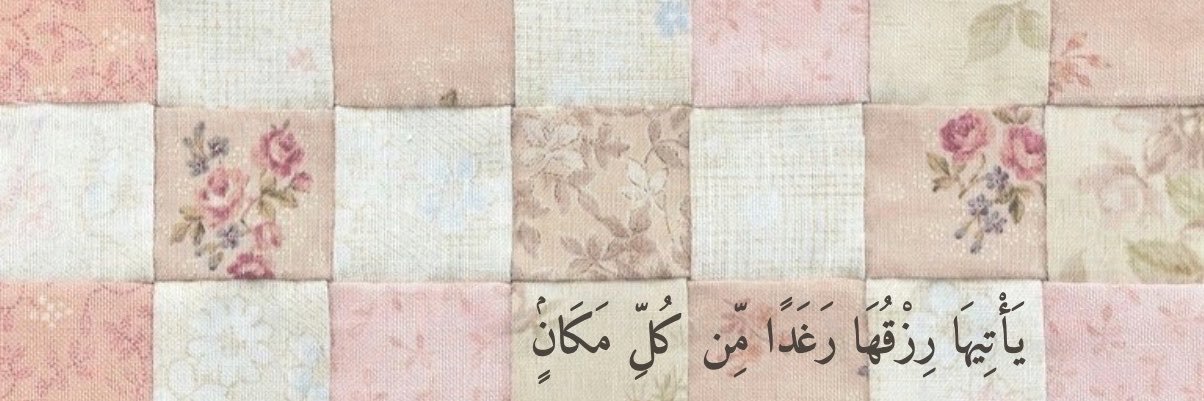 يَأْتِيهَا رِزْقُهَا رَغَدًا مِّن كُلِّ مَكَانٍۢ